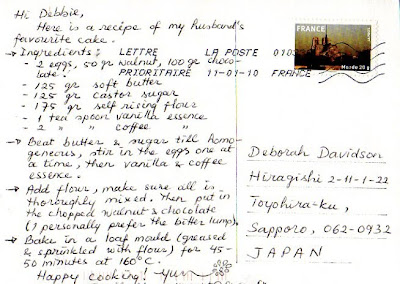 Hi Debbie,
Here is a recipe of my husband's
favourite cake.
→ Ingredients:
- 2 eggs, 50 gr walnut, 100 gr choco-
late.
- 125 gr soft butter
- 125 gr castor sugar
- 175 gr self rising flour
- 1 tea spoon vanilla essence
- 2 " " coffee "
→ Beat butter & sugar till homo-
geneous, stir in the eggs one at
a time, then vanilla & coffee
essence.
→ Add flour, make sure all is
thoroughly mixed. Then put in
the chopped walnut & chocolate
(I personally prefer the bitter lump).
→ Bake in a loaf mould (greased
& sprinkled with flour) for 45-
50 minutes at 160°C.
Happy cooking!
LETTRE LA POSTE 0103
PRIORITAIRE 11-01-10 FRANCE
FRANCE
Monde 20 g
Deborah Davidson
Hiragishi 2-11-1-22
Toyohira-ku,
Sapporo, 062-0932
JAPAN